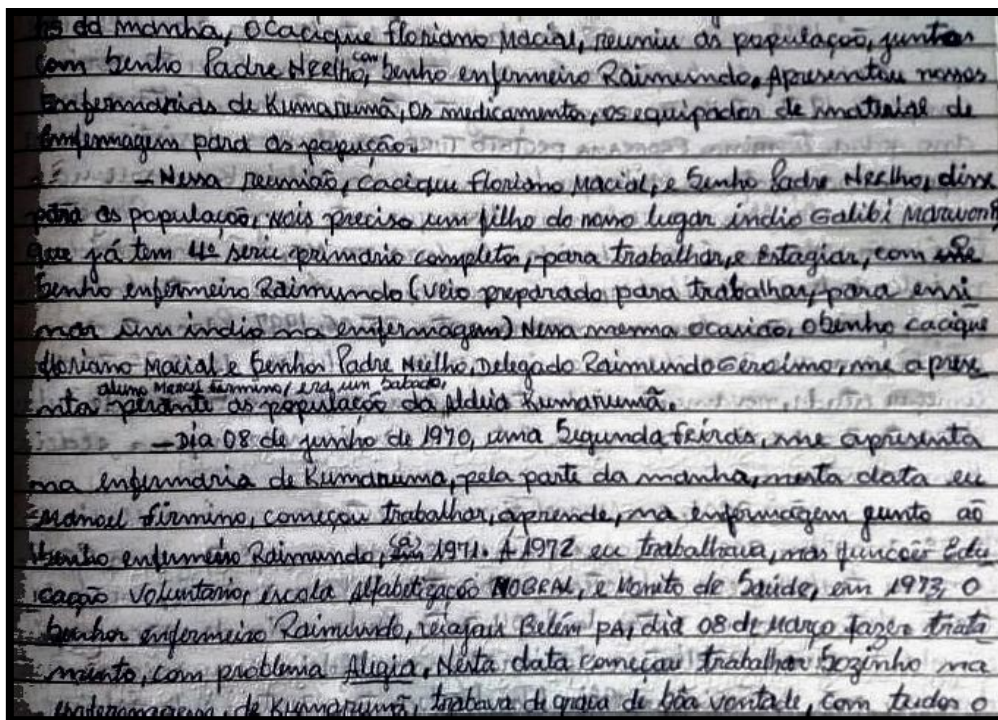 hs da manhã, O Cacique floriano Macial, reuniu as população, juntos
com Senho Padre Neelho, com Senho enfermeiro Raimundo. Apresentou nossos
Enfermarias de Kumarumã, Os medicamentos, os equipador de matrial de
enfermagem para as popução.
— Nessa reunião, cacique floriano Macial, e Senho Padre Neelho, disse
para as população, Nois preciso um filho do nosso lugar índio Galibi Marworn,
que já tem 4º serie primario completos, para trabalhar, e Estagiar, com
Senho enfermeiro Raimundo (veio preparado para trabalhar, para ensi
nar um indio na enfermagem) Nessa mesma ocasião, O Senho cacique
floriano Macial e Senhor Padre Neelho, Delegado Raimundo Geroimo, me aprese
aluno Manoel firmino, era um Sabado,
nta perante as população da Aldeia Kumarumã.
— Dia 08 de junho de 1970, uma Segunda feiras, me apresenta
na enfermaria de Kumaruma, pela parte da manha, nesta data eu
Manoel firmino, começou trabalhar, aprende, na enfermagem junto ao
Senho enfermeiro Raimundo, (a) 1971. A 1972 eu trabalhava, nas funcões Edu
cação Voluntario, escola Alfabetização MOBRAL, e Monito de Saúde, em 1973, O
Senhor enfermeiro Raimundo, Belém PA, dia 08 de Março fazer trata
mento, com problema Alegia, Nesta data começou trabalhar Sozinho na
enfermagem de Kumarumã, trabava de graça de bôa vontade, com tudos o